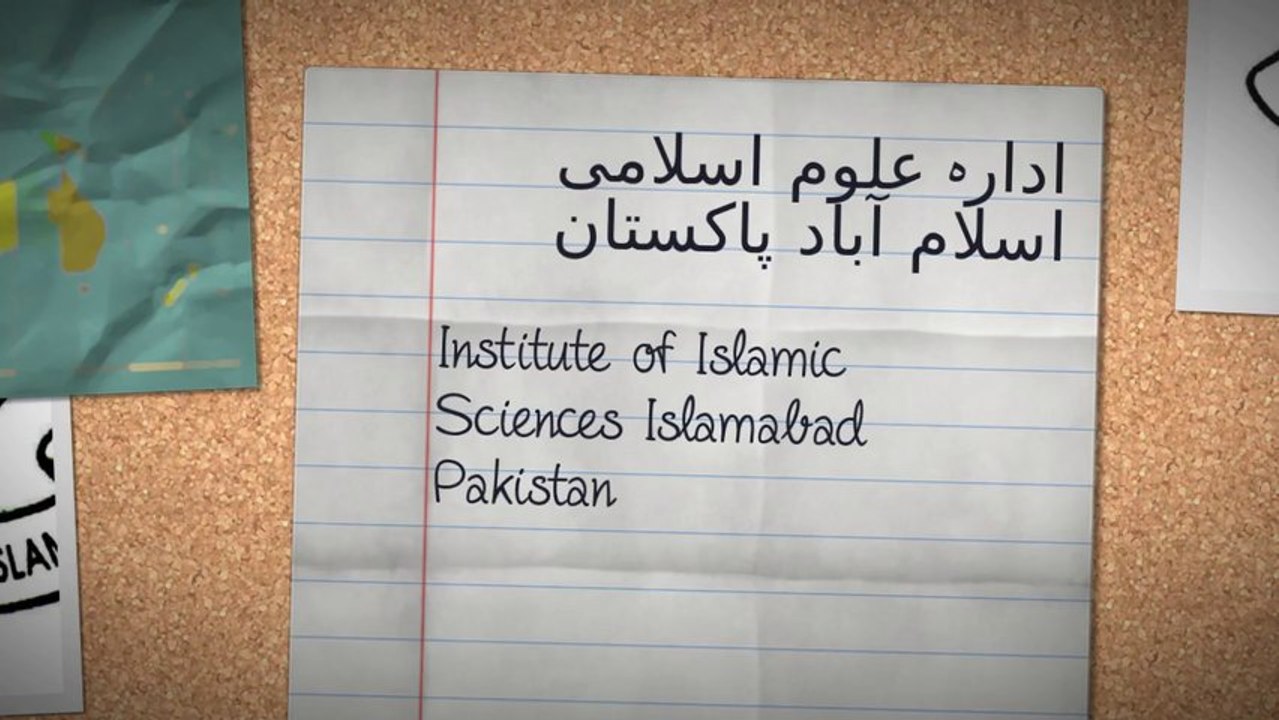 ادارہ علوم اسلامی
اسلام آباد پاکستان
Institute of Islamic
Sciences Islamabad
Pakistan